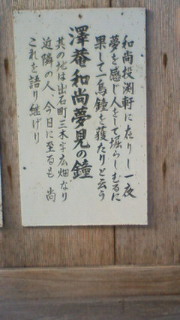 和尚投渕軒に在りし一夜
夢を感じ人をして堀らしむるに
果して一鳥鐘を獲たりと云う
澤菴和尚夢見の鐘
其の地は出石町三木字広畑なり
近隣の人、今日に至るも尚
これを語り継げり